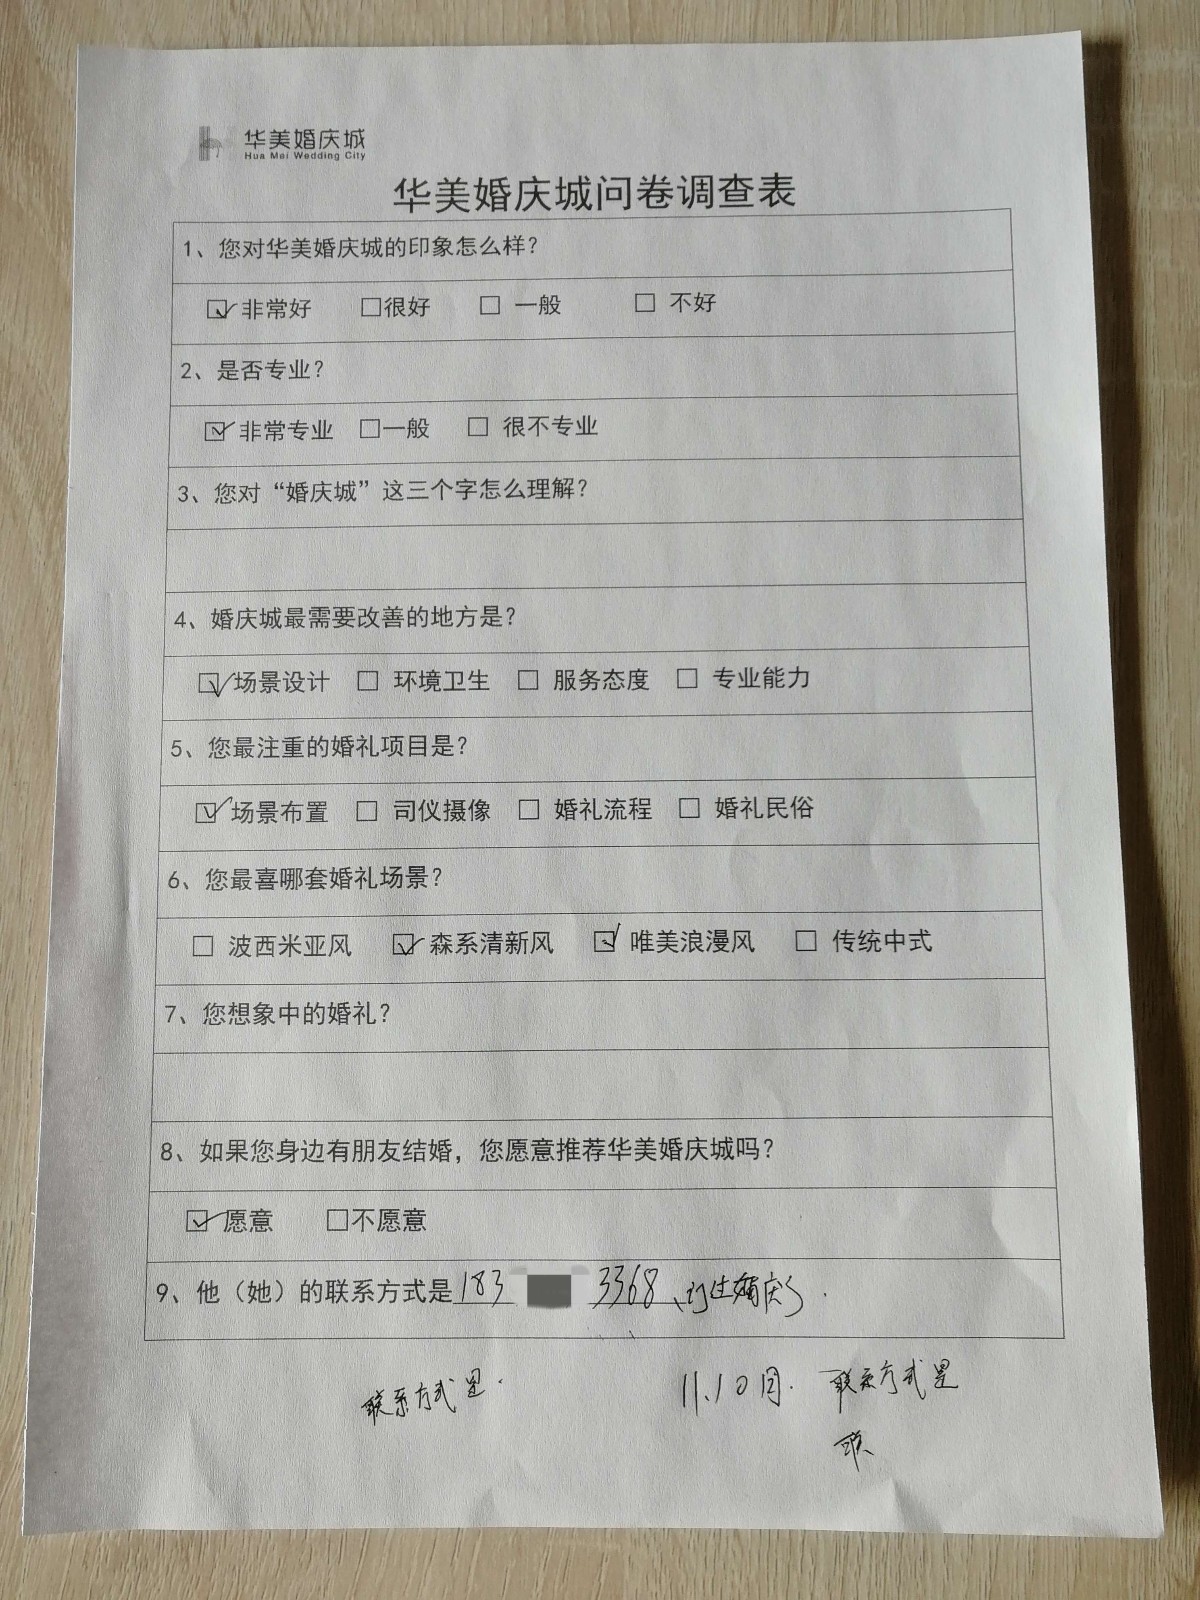 华美婚庆城
Hua Mei Wedding City
华美婚庆城问卷调查表
1、您对华美婚庆城的印象怎么样？
☑ 非常好 □很好 □ 一般 □ 不好
2、是否专业？
☑ 非常专业 □一般 □ 很不专业
3、您对“婚庆城”这三个字怎么理解？
4、婚庆城最需要改善的地方是？
☑ 场景设计 □ 环境卫生 □ 服务态度 □ 专业能力
5、您最注重的婚礼项目是？
☑ 场景布置 □ 司仪摄像 □ 婚礼流程 □ 婚礼民俗
6、您最喜哪套婚礼场景？
□ 波西米亚风 ☑ 森系清新风 ☑ 唯美浪漫风 □ 传统中式
7、您想象中的婚礼？
8、如果您身边有朋友结婚，您愿意推荐华美婚庆城吗？
☑ 愿意 □不愿意
9、他（她）的联系方式是183 3368、订过婚庆了.
联系方式是. 11.10 联系方式是
联